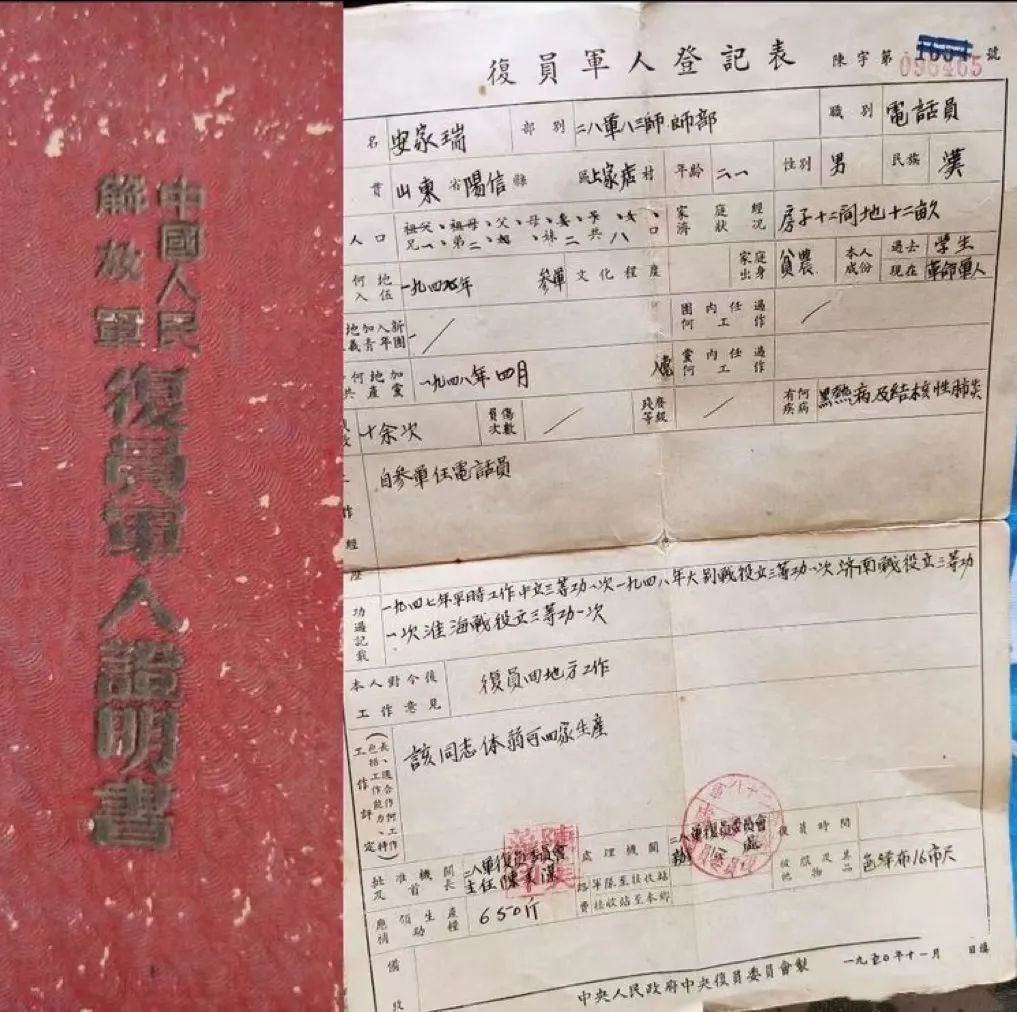 中國人民
解放軍
復員軍人證明書
復員軍人登記表 陳字第 096265 號
名 安家瑞 部別 二八軍八三師師部 職別 電話員
貫 山東省陽信縣 區 家店村 年齡 二一 性別 男 民族 漢
人口 祖父、祖母、父、母、妻、子、女、兄一、弟二、妹二共八口 家庭經濟狀況 房子十二間地十二畝
何地入伍 一九四 年 參軍 文化程度 家庭出身 貧農 本人成份 過去 学生 現在 革命軍人
地加入新 義青年團 / 團內任過何工作 /
何地加 共產黨 一九四八年四月 黨內任過何工作
十余次 負傷次數 / 殘廢等級 / 有何疾病 黑熱病及結核性肺炎
作經歷 自參軍任電話員
功過記載 一九四七年平時工作中立三等功一次一九四八年大別戰役立三等功一次济南戰役立三等功
一次淮海戰役立三等功一次
本人對今後工作意見 復員回地方工作
工作評定 該同志体弱可回家生產
批准機關及首長 二八軍復員委員會主任陳美藻 處理機關 二八軍復員委員會 復員時間
路軍隊至接收站 費接收站至本鄉 被服及其他物品 色洋布16市尺
應領生產補助糧 650斤
備
中央人民政府中央復員委員會製 一九五〇年十一月 日填